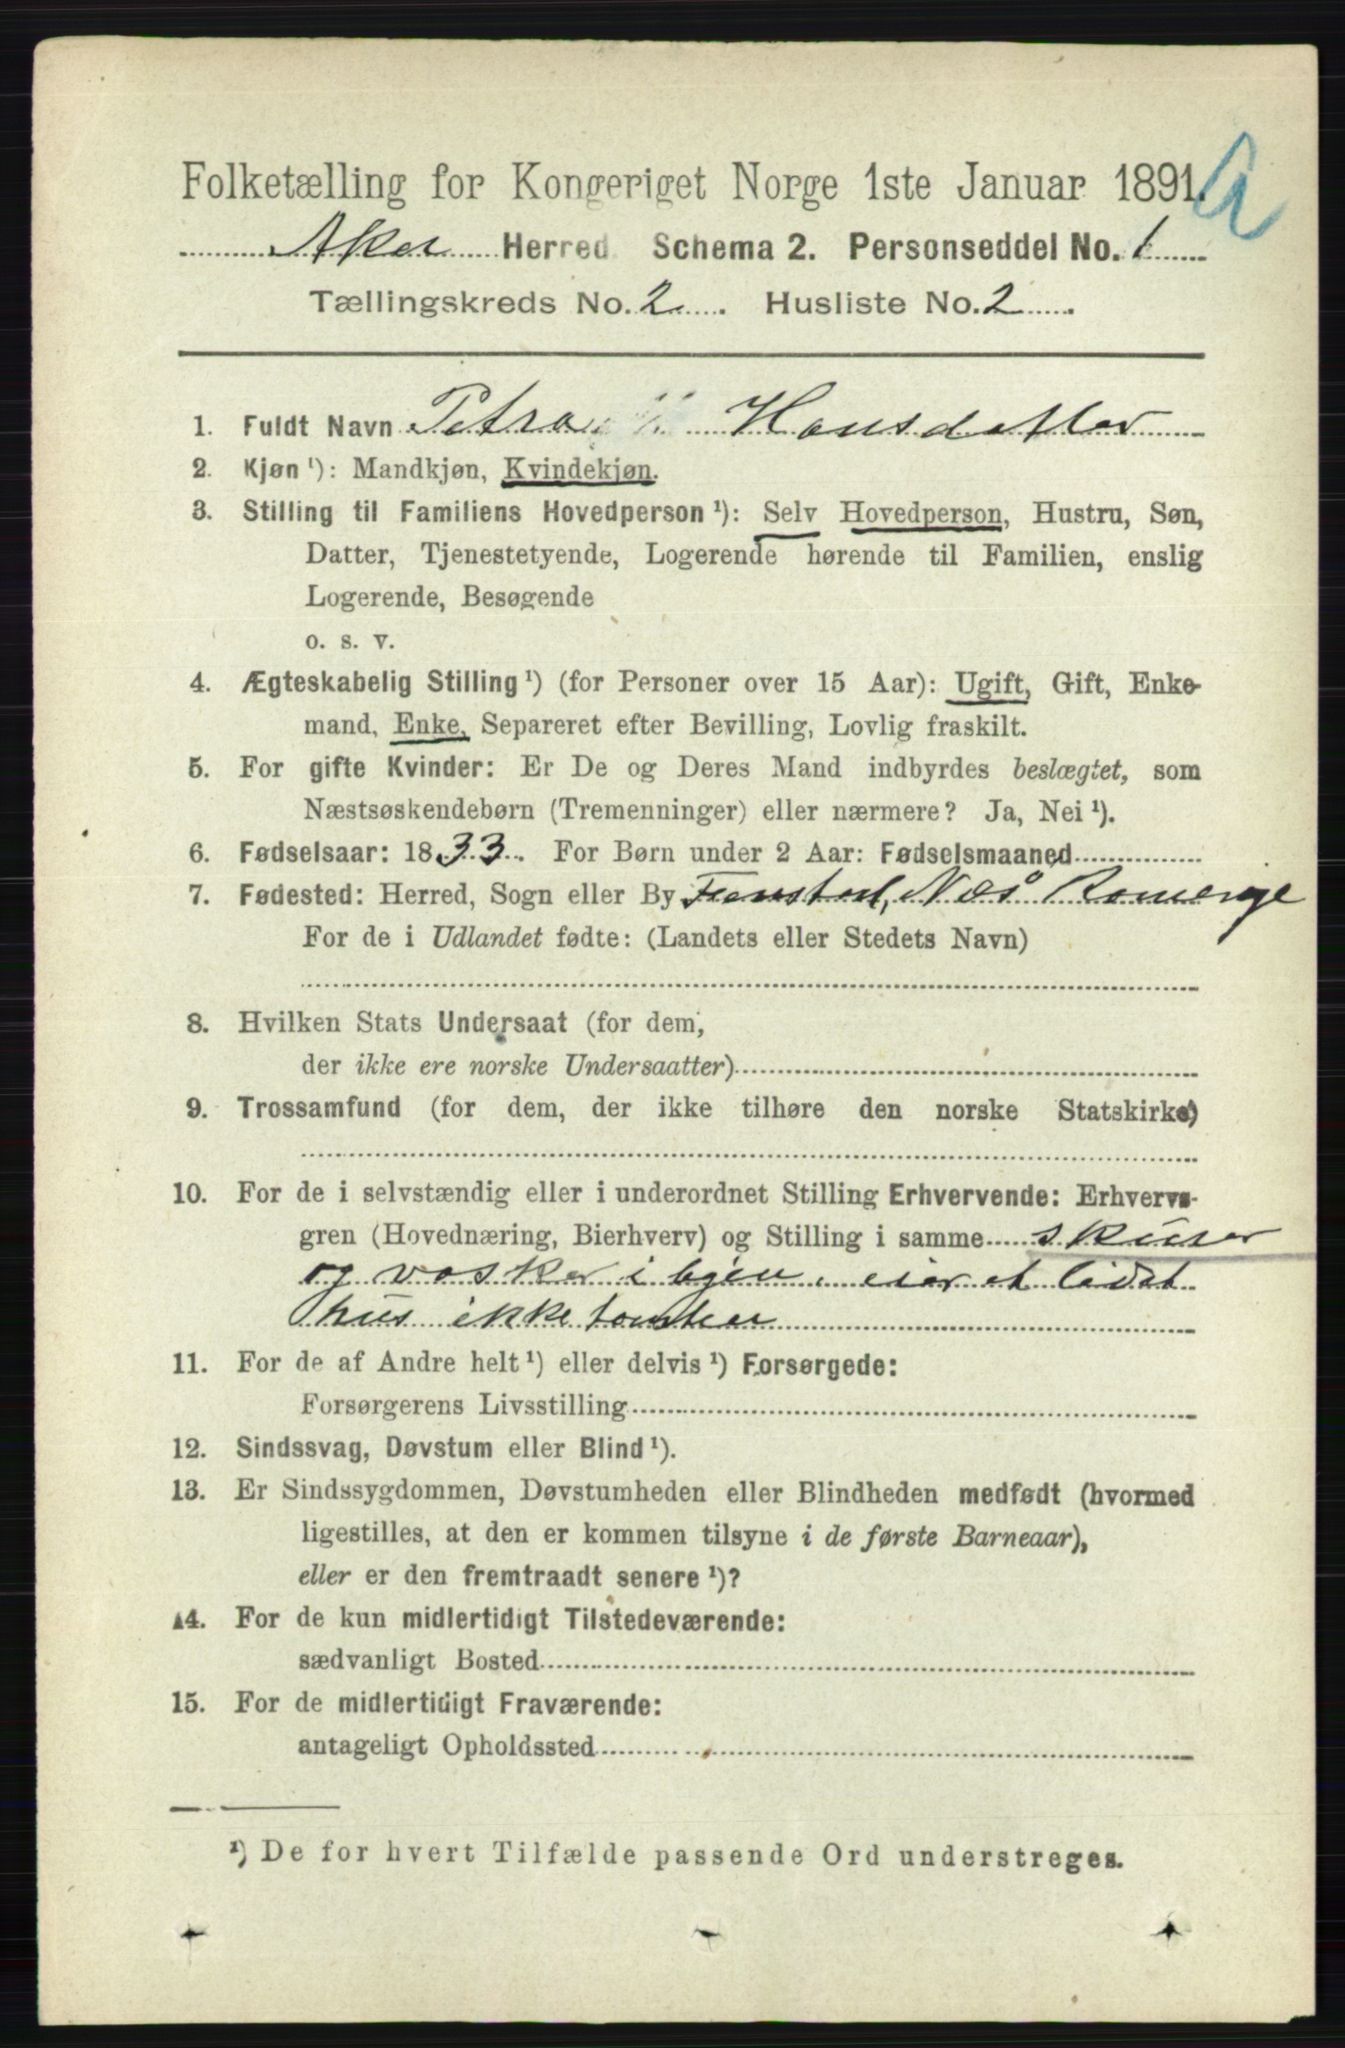 Folketælling for Kongeriget Norge 1ste Januar 1891.
Aker Herred Schema 2. Personseddel No. 1
Tællingskreds No. 2. Husliste No. 2.
1. Fuldt Navn Petra Hansdatter
2. Kjøn ¹): Mandkjøn, Kvindekjøn.
3. Stilling til Familiens Hovedperson ¹): Selv Hovedperson, Hustru, Søn,
Datter, Tjenestetyende, Logerende hørende til Familien, enslig
Logerende, Besøgende
o. s. v.
4. Ægteskabelig Stilling ¹) (for Personer over 15 Aar): Ugift, Gift, Enke-
mand, Enke, Separeret efter Bevilling, Lovlig fraskilt.
5. For gifte Kvinder: Er De og Deres Mand indbyrdes beslægtet, som
Næstsøskendebørn (Tremenninger) eller nærmere? Ja, Nei ¹).
6. Fødselsaar: 1833. For Børn under 2 Aar: Fødselsmaaned
7. Fødested: Herred, Sogn eller By Næs Romerige
For de i Udlandet fødte: (Landets eller Stedets Navn)
8. Hvilken Stats Undersaat (for dem,
der ikke ere norske Undersaatter)
9. Trossamfund (for dem, der ikke tilhøre den norske Statskirke)
10. For de i selvstændig eller i underordnet Stilling Erhvervende: Erhvervs-
gren (Hovednæring, Bierhverv) og Stilling i samme skurer
og vasker i byen, eier et lidet
hus ikke tomten
11. For de af Andre helt ¹) eller delvis ¹) Forsørgede:
Forsørgerens Livsstilling
12. Sindssvag, Døvstum eller Blind ¹).
13. Er Sindssygdommen, Døvstumheden eller Blindheden medfødt (hvormed
ligestilles, at den er kommen tilsyne i de første Barneaar),
eller er den fremtraadt senere ¹)?
14. For de kun midlertidigt Tilstedeværende:
sædvanligt Bosted
15. For de midlertidigt Fraværende:
antageligt Opholdssted
¹) De for hvert Tilfælde passende Ord understreges.